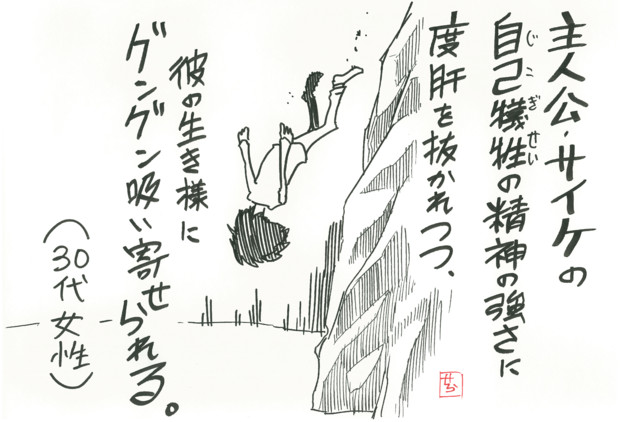 主人公・サイケの
自己犠牲の精神の強さに
じこぎせい
度肝を抜かれつつ、
彼の生き様に
グングン吸い寄せられる。
（30代女性）